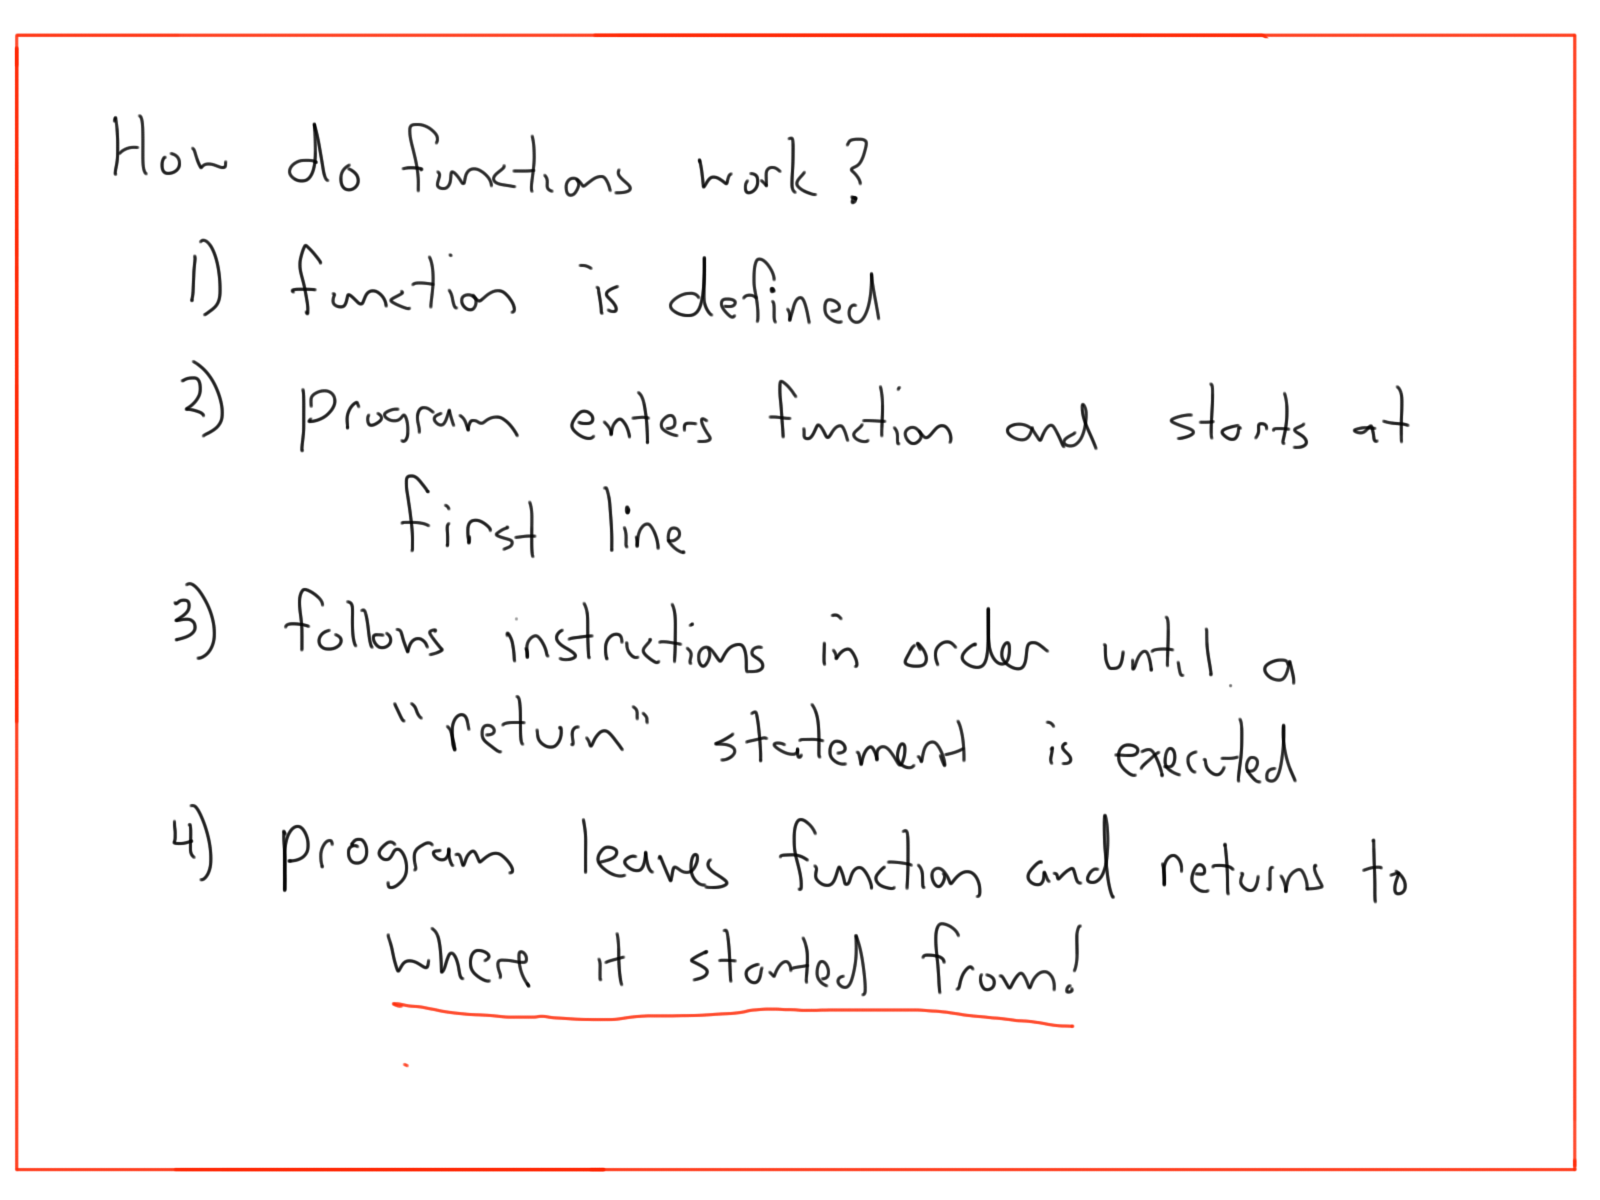 How do functions work?
1) function is defined
2) program enters function and starts at
first line
3) follows instructions in order until a
"return" statement is executed
4) program leaves function and returns to
where it started from!